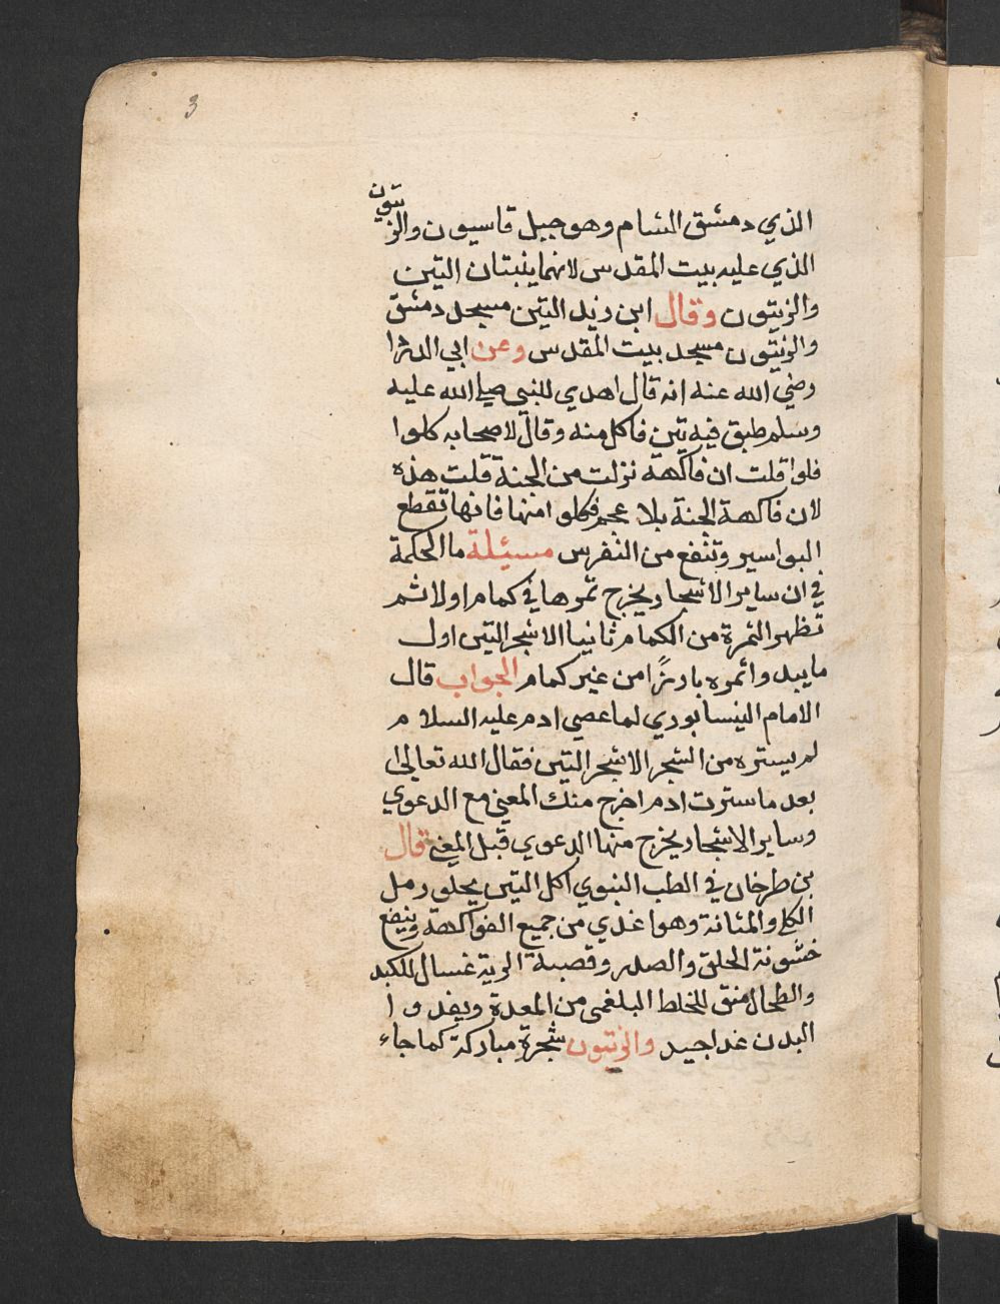 3
الذي دمشق الشام وهو جبل قاسيون والزيتون
الذي عليه بيت المقدس لانهما ينبتان التين
والزيتون وقال ابن زيد التين مسجد دمشق
والزيتون مسجد بيت المقدس وعن ابي الدردا
رضي الله عنه انه قال اهدي للنبي صلي الله عليه
وسلم طبق فيه تين فاكل منه وقال لاصحابه كلوا
فلوا قلت ان فاكهة نزلت من الجنة قلت هذه
لان فاكهة الجنة بلا عجم فكلوا منها فانها تقطع
البواسير وتنفع من النقرس مسئلة ما الحكمة
في ان ساير الاشجار يخرج ثمرها في كمام اولا ثم
تظهر الثمرة من الكمام ثانيا الا شجر التين اول
ما يبدوا ثمره بارزًا من غير كمام الجواب قال
الامام النيسابوري لما عصي ادم عليه السلام
لم يستره من الشجر الا شجر التين فقال الله تعالي
بعد ما سترت ادم اخرج منك المعني مع الدعوي
وساير الاشجار يخرج منها الدعوي قبل المعني قال
بن طرخان في الطب النبوي اكل التين يجلو رمل
الكلي والمثانة وهو اغدي من جميع الفواكهة وينفع
خشونة الحلق والصدر وقصبة الرية غسال للكبد
والطحال منق للخلط البلغمي من المعدة ويغدوا
البدن غدا جيد والزيتون شجرة مباركة كما جاء